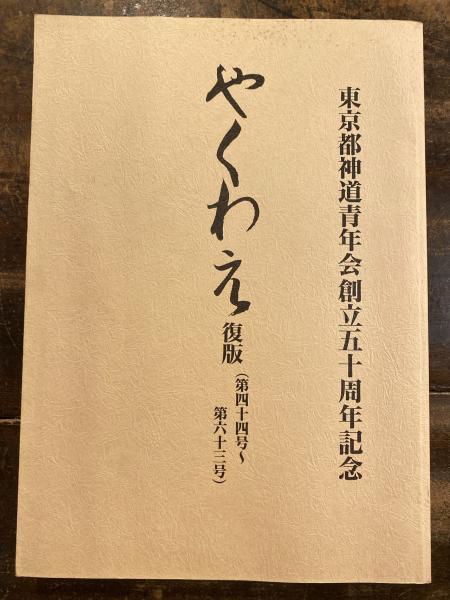 東京都神道青年会創立五十周年記念
やくわえ復版（第四十四号〜
第六十三号）